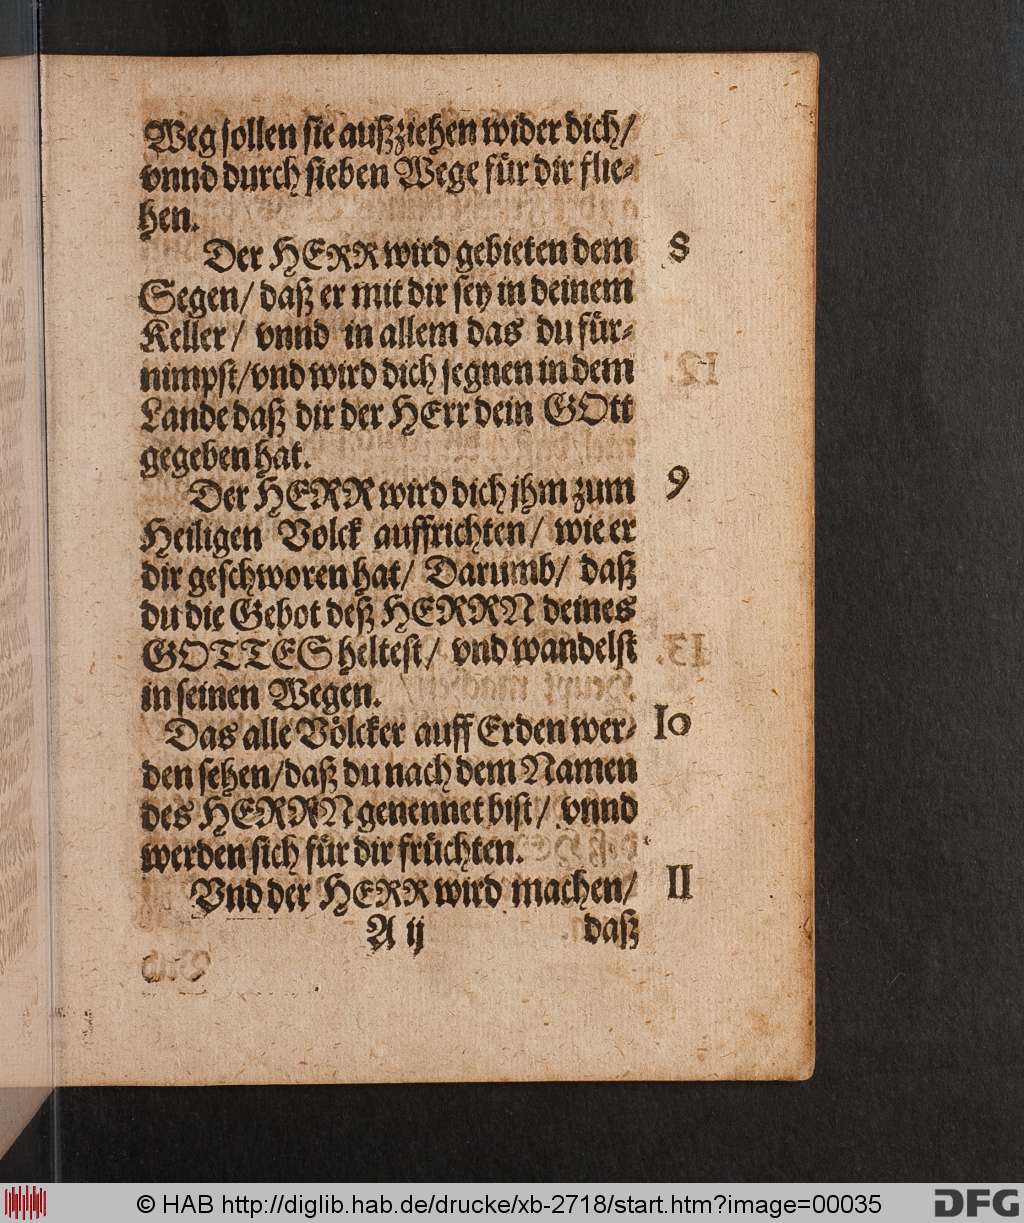 Weg sollen sie außziehen wider dich/
vnnd durch sieben Wege für dir flie-
hen.
Der HERR wird gebieten dem 8
Segen/ daß er mit dir sey in deinem
Keller/ vnnd in allem das du für-
nimpst/ vnd wird dich segnen in dem
Lande daß dir der HErr dein GOtt
gegeben hat.
Der HERR wird dich jhm zum 9
Heiligen Volck auffrichten/ wie er
dir geschworen hat/ Darumb/ daß
du die Gebot deß HERRN deines
GOTTES heltest/ vnd wandelst
in seinen Wegen.
Das alle Völcker auff Erden wer- 10
den sehen/ daß du nach dem Namen
des HERRN genennet bist/ vnnd
werden sich für dir früchten.
Vnd der HERR wird machen/ 11
A ij daß
© HAB http://diglib.hab.de/drucke/xb-2718/start.htm?image=00035 DFG